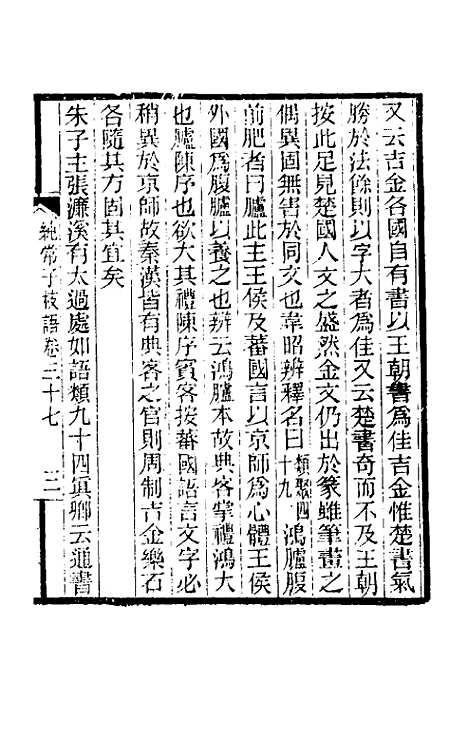 又云吉金各國自有書以王朝書爲佳吉金惟楚書氣
勝於法餘則以字大者爲佳又云楚書奇而不及王朝
按此足見楚國人文之盛然金文仍出於篆雖筆畫之
偶異固無害於同文也韋昭辨釋名曰類聚四十九鴻臚腹
前肥者曰臚此主王侯及蕃國言以京師爲心體王侯
外國爲腹臚以養之也辨云鴻臚本故典客掌禮鴻大
也臚陳序也欲大其禮陳序賓客按蕃國語言文字必
稍異於京師故秦漢皆有典客之官則周制吉金樂石
各隨其方固其宜矣
朱子主張濂溪有太過處如語類九十四眞卿云通書
純常子枝語卷三十七 三